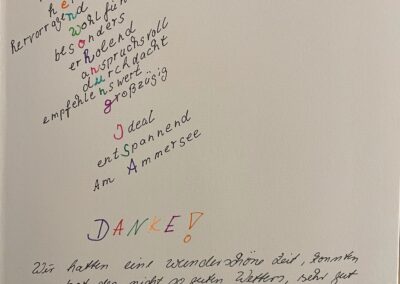 hervorragend
wohlfüh
besonders
erholend
anspruchsvoll
durchdacht
empfehlenswert
großzügig
Ideal
entspannend
Am Ammersee
DANKE!
Wir hatten eine wunderschöne Zeit, konnten
des nicht so guten Wetters, sehr gut